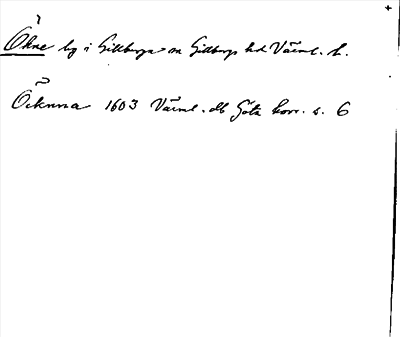 Ökne by i Gillberga sn Gillbergs hd Värml. l.
Öcknna 1603 Värml. db Göta korr. s. 6